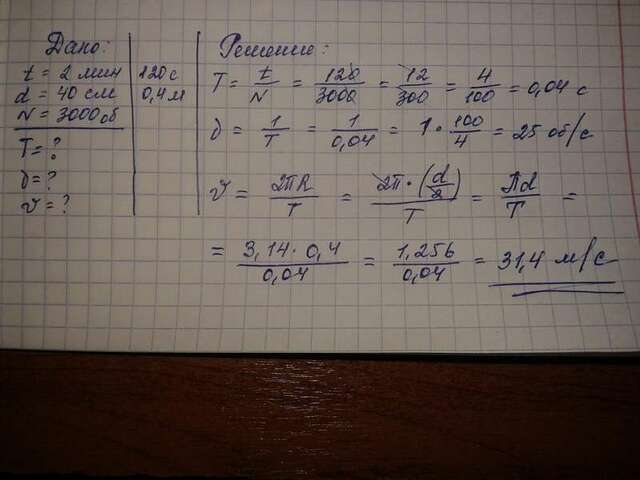 Дано:
t = 2 мин 120 с
d = 40 см 0,4 м
N = 3000 об
T = ?
ν = ?
v = ?
Решение:
T = t/N = 120/3000 = 12/300 = 4/100 = 0,04 с
ν = 1/T = 1/0,04 = 1 · 100/4 = 25 об/с
v = 2πR/T = 2π·(d/2)/T = πd/T =
= 3,14 · 0,4/0,04 = 1,256/0,04 = 31,4 м/с